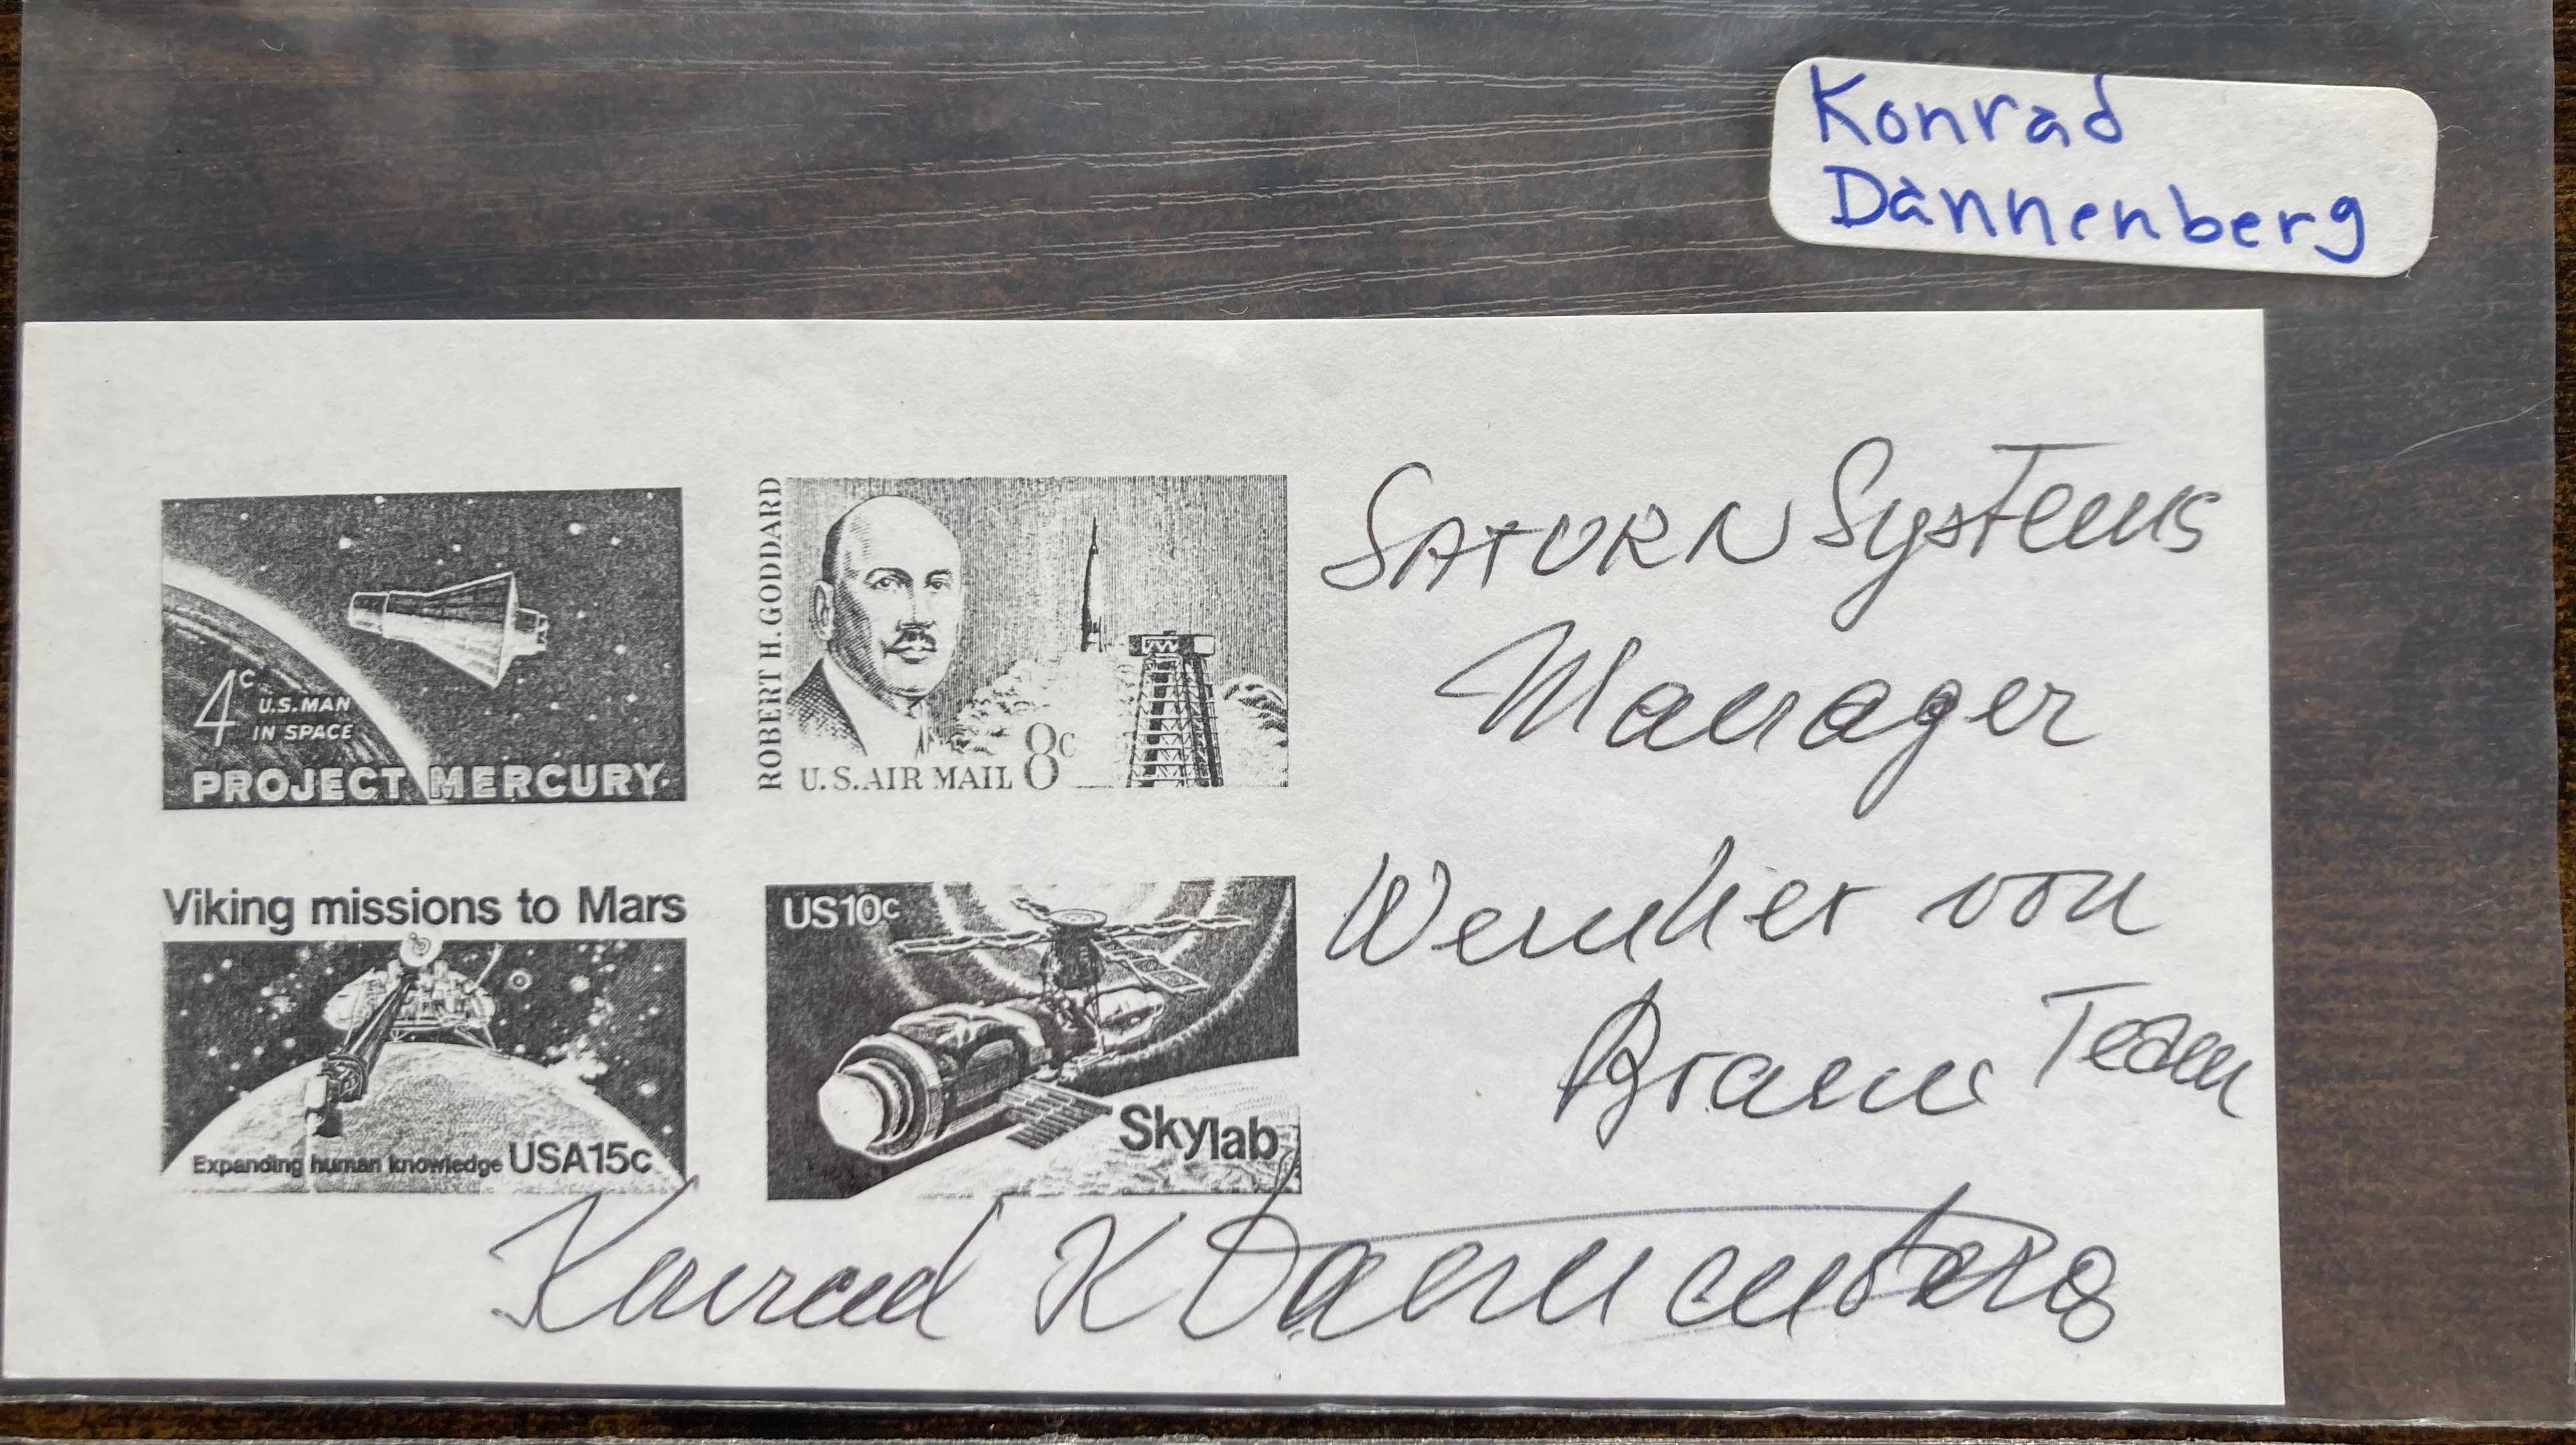 Konrad
Dannenberg
4c
U.S. MAN
IN SPACE
PROJECT MERCURY
ROBERT H. GODDARD
U.S. AIR MAIL 8c
SATURN Systems
Manager
Viking missions to Mars
Expanding human knowledge USA 15c
US10c
Skylab
Wernher von
Braun Team
Konrad K Dannenberg